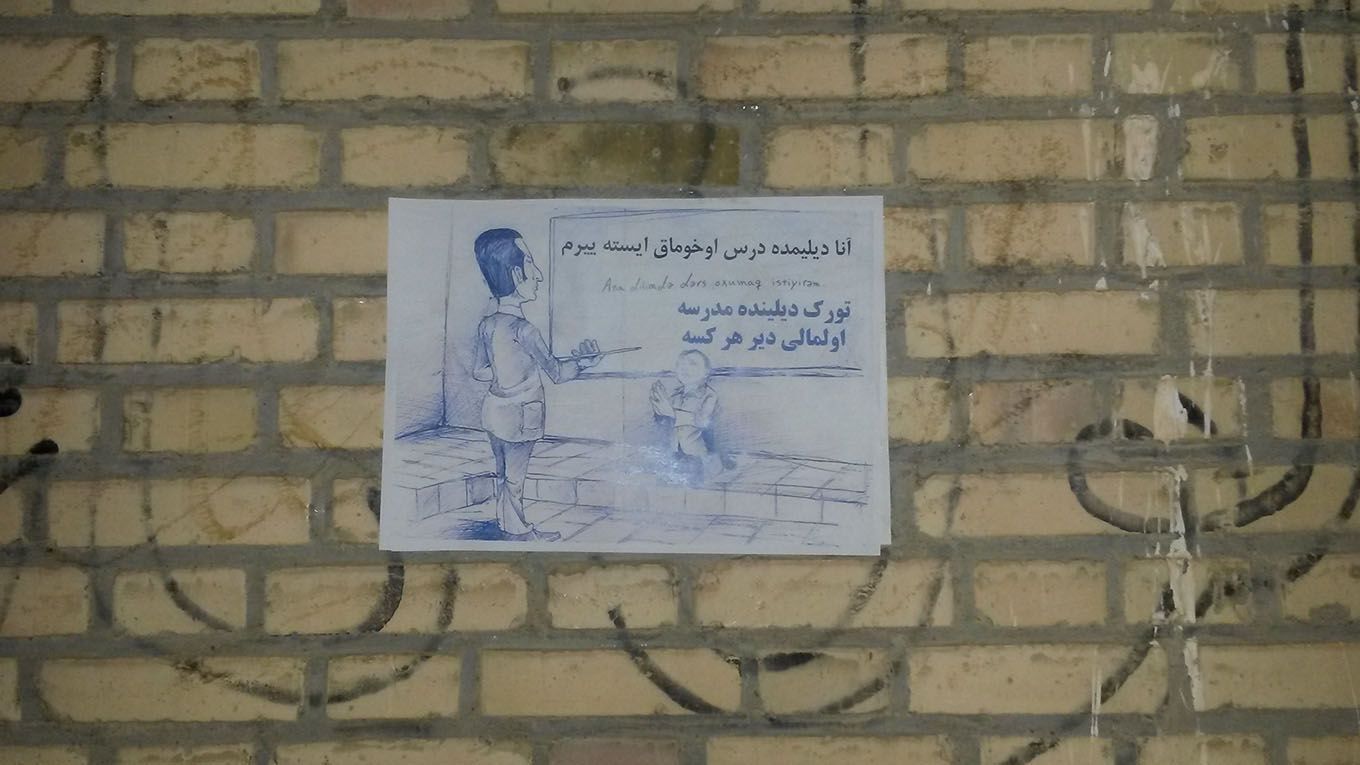 آنا دیلیمده درس اوخوماق ایسته ییرم
Ana dilimdə dərs oxumaq istiyirəm
تورک دیلینده مدرسه
اولمالی دیر هر کسه